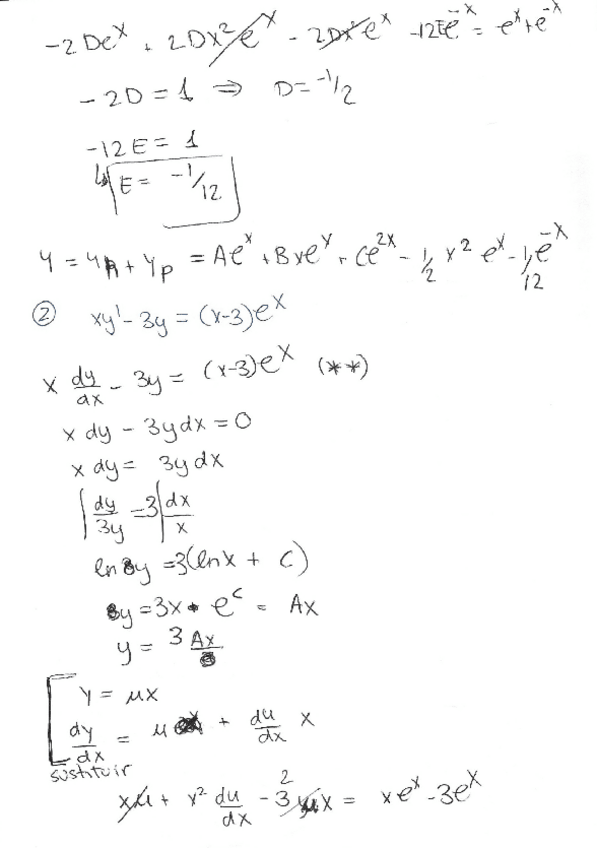 -2De^x + 2Dx²e^x - 2Dx²e^x - 12Ee^-x = e^x + e^-x
-2D = 1 ⇒ D = -1/2
-12E = 1
↳ E = -1/12
y = yh + yp = Ae^x + Bxe^x + Ce^2x - 1/2 x² e^x - 1/12 e^-x
② xy' - 3y = (x-3)e^x
x dy/dx - 3y = (x-3)e^x (**)
x dy - 3y dx = 0
x dy = 3y dx
∫ dy/3y = 3 ∫ dx/x
ln y = 3(ln x + C)
y = 3x · e^c = Ax
y = 3 Ax
y = μx
dy/dx = μ + du/dx x
sustituir
xμ + x² du/dx - 3μx = xe^x - 3e^x
2